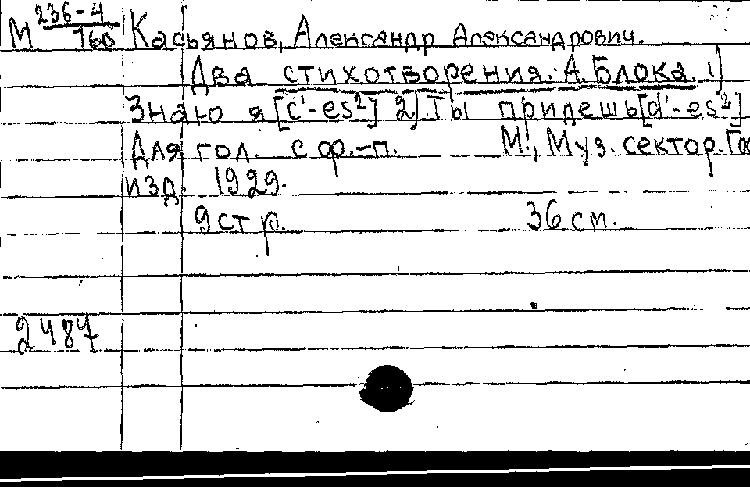 М 236-4/160 Касьянов, Александр Александрович.
Два стихотворения. А. Блока. 1)
Знаю я [c'-es²] 2) Ты придешь [d'-es²]
Для гол. с ф.-п. М., Муз. сектор. Гос
изд. 1929.
9 стр. 36 см.
2487